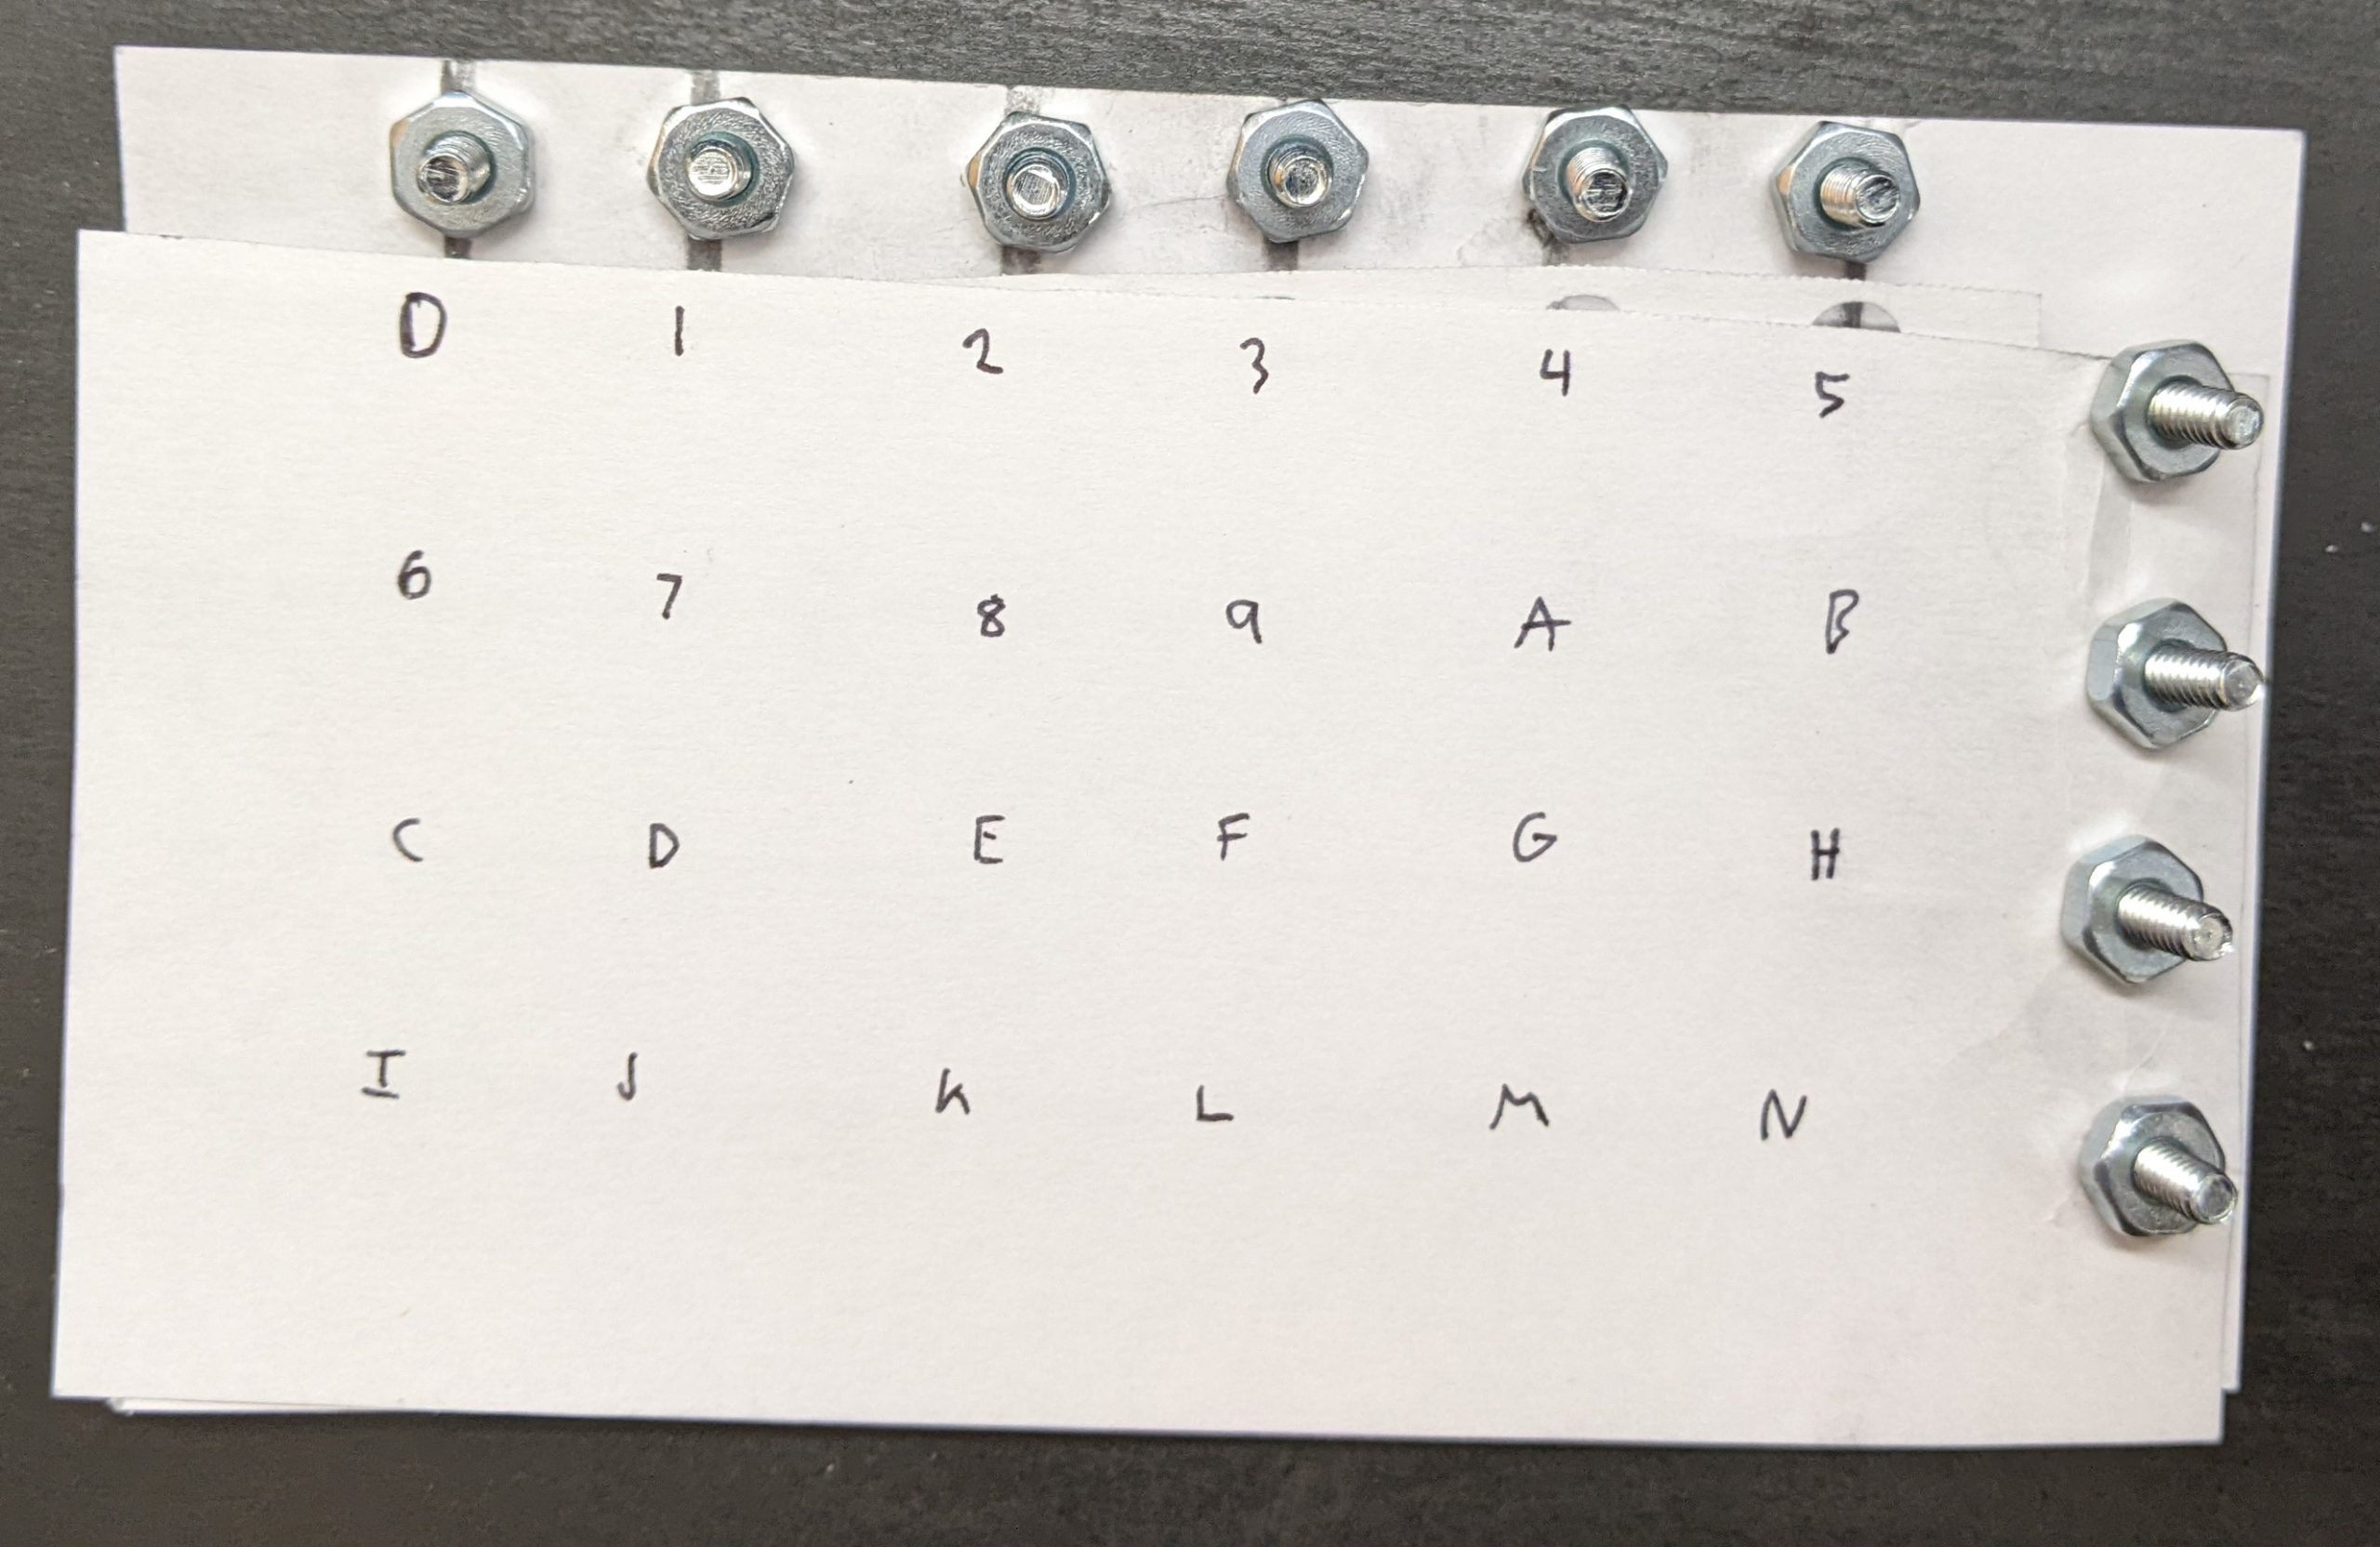 0 1 2 3 4 5
6 7 8 9 A B
C D E F G H
I J K L M N